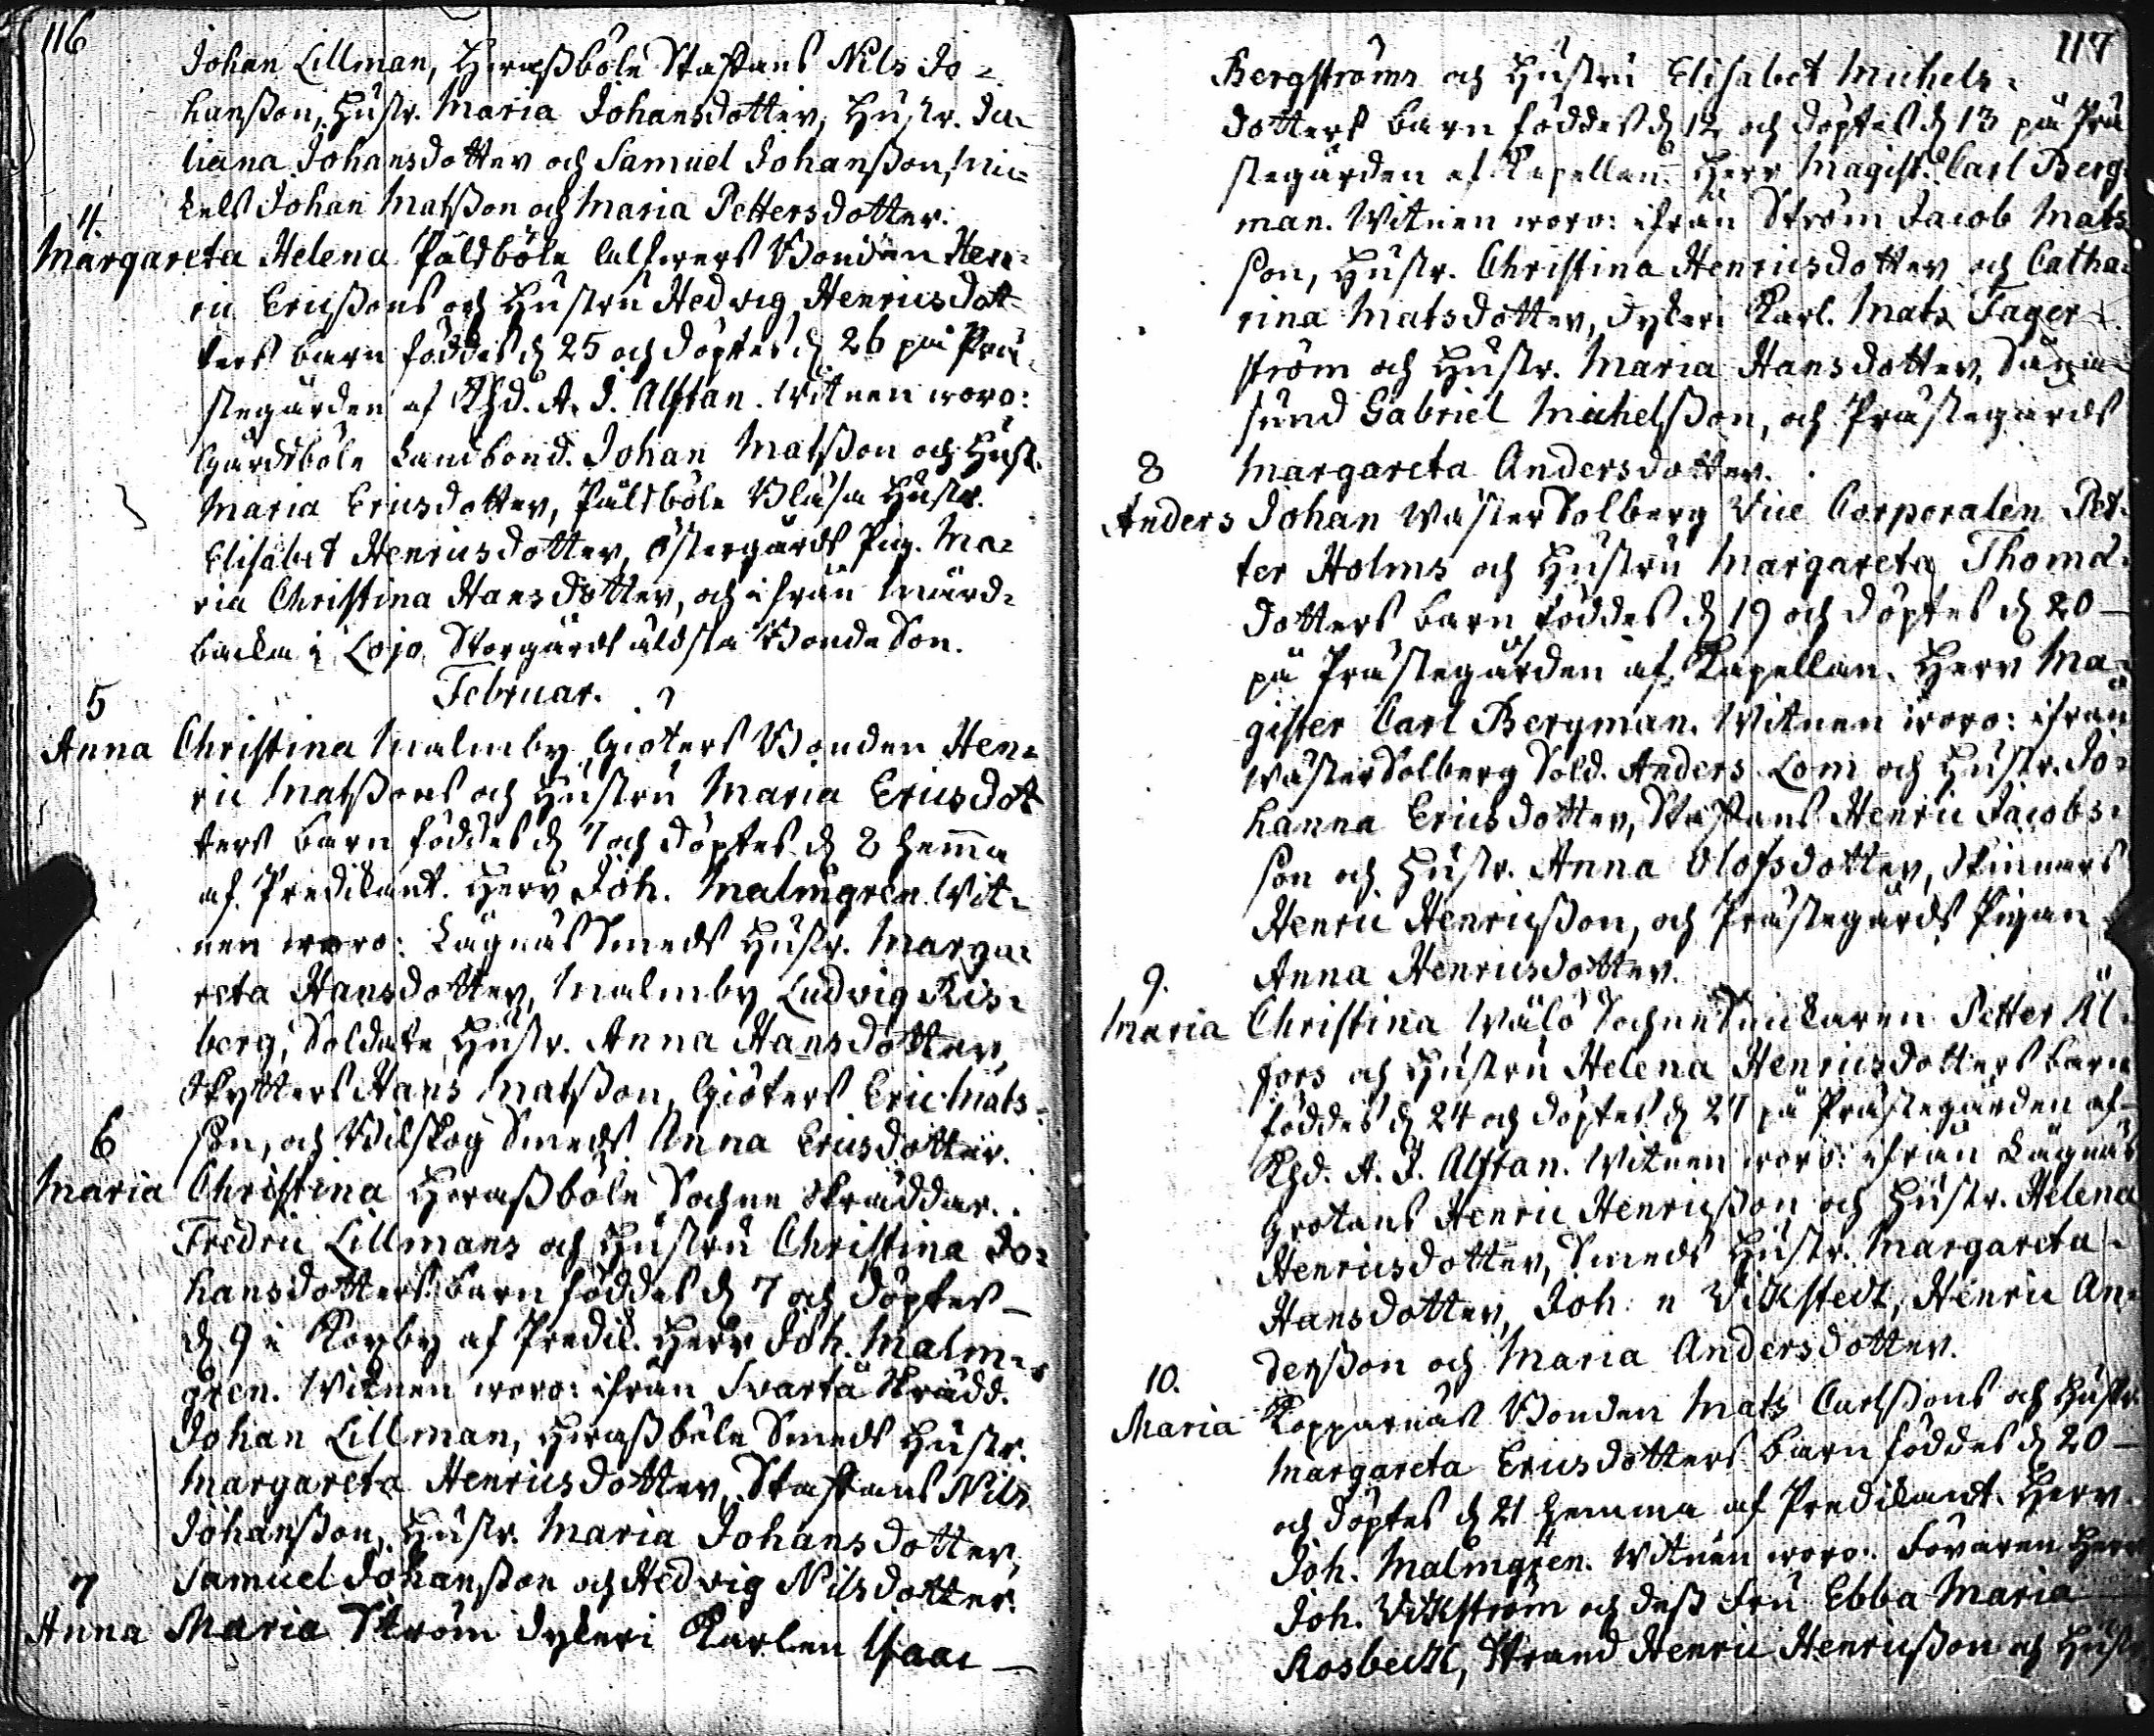 116
Johan Lillman, Heraßböle Staffans Nils Jo=
hanßon, Hustr. Maria Johansdotter, Hustr. Ju=
liana Johansdotter och Samuel Johanßon, Mic=
kels Johan Matßon och Maria Pettersdotter.
4.
Margareta Helena Påldböle Bonden Hen=
ric Ericßons och Hustru Hedvig Henricsdot=
ters barn föddes d. 25 och döptes d. 26 på Prä=
stegården af Khd. A. J. Alftan. Witnen woro:
Gårdsböle Landbond. Johan Matßon och Hust.
Maria Ericsdotter, Påldböle Hustr.
Elisabet Henricsdotter, Östergårds Pig. Ma=
ria Christina Hansdotter, och ifrån Mård=
backa i Lojo, Storgårds äldsta Bonde Son.
Februar.
5
Anna Christina Malmby Giöters Bonden Hen=
ric Matßons och Hustru Maria Ericsdot
ters barn föddes d. 7 och döptes d. 8 hema
af Predikant. Herr Joh. Malmgren. Wit=
nen woro: Lägnäs Smeds Hustr. Marga=
reta Hansdotter, Malmby Ludvig Ris=
berg, Soldate Hustr. Anna Hansdotter,
Skytters Hans Matßon, Giöters Eric Mats=
son, och Wilskog Smeds Anna Ericsdotter.
6
Maria Christina Heraßböle Sochne Skräddar.
Fredric Lillmans och Hustru Christina Jo=
hansdotters barn föddes d. 7 och döptes
d. 9 i Korby af Predik. Herr Joh. Malm=
gren. Witnen woro: ifrån Svartå Skrädd.
Johan Lillman, Heraßböle Smeds Hustr.
Margareta Henricsdotter, Staffans Nils
Johanßon, Hustr. Maria Johansdotter,
Samuel Johanßon och Hedvig Nilsdotter.
7
Anna Maria Ström Dykeri Karlen Isaac
117
Bergströms och Hustru Elisabet Michels=
dotters barn föddes d. 12 och döptes d. 13 på Prä
stegården af Kapellan. Herr Magist. Carl Berg
man. Witnen woro: ifrån Ström Jacob Mats
son, Hustr. Christina Henricsdotter och Catha=
rina Matsdotter, Dykeri Karl. Mats Fager=
ström och Hustr. Maria Hansdotter,
sund Gabriel Michelßon, och Prästegårds
Margareta Andersdotter.
8
Anders Johan Wäster Solberg Vice Corporalen Pet=
ter Holms och Hustru Margareta Thomæ
dotters barn föddes d. 19 och döptes d. 20
på Prästegården af Kapellan. Herr Ma=
gister Carl Bergman. Witnen woro: ifrån
Wäster Solberg Sold. Anders Lom och Hustr. Jo=
hanna Ericsdotter, Staffans Henric Jacobs=
son och Hustr. Anna Olofsdotter, Skinnars
Henric Henricßon, och Prästegårds Pigan
Anna Henricsdotter.
9.
Maria Christina Wälö Sochne Snickaren Petter Äl=
fors och Hustru Helena Henricsdotters barn
föddes d. 24 och döptes d. 27 på Prästegården af
Khd. A. J. Alftan. Witnen woro: ifrån Lägnäs
Grotans Henric Henricßon och Hustr. Helena
Henricsdotter, Smeds Hustr. Margareta
Hansdotter, Joh. Vickstedt, Henric An=
derßon och Maria Andersdotter.
10.
Maria Kopparnäs Bonden Mats Carlßons och Hustr.
Margareta Ericsdotters barn föddes d. 20
och döptes d. 21 hemma af Predikant. Herr
Joh. Malmgren. Witnen woro: Herr
Joh. Vickström och deß Fru Ebba Maria
Rosbeck, Strand Henric Henricßon och Hustr